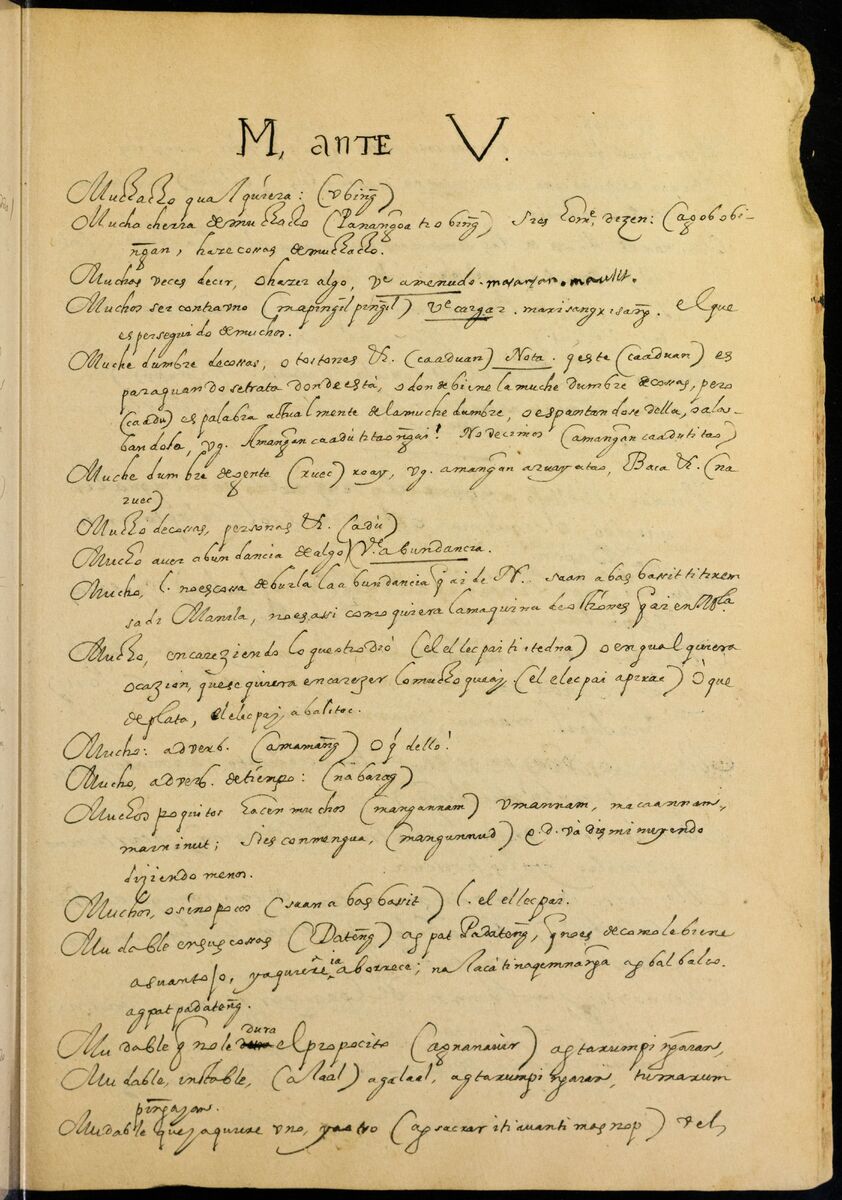 M, ante V.
Muchacho qualquiera: (vbing̃)
Mucha cherra de muchacho (Panang̃oatro bing̃) si es home, dezen: (agobobi-
ng̃an, haze cossas de muchacho.
Muchas veces decir, o hazer algo, Ve amenudo. masansan. maulit.
Muchos ser contra vno (maping̃il ping̃il) Ve cargar. marisangxisang̃. el que
es perseguido de muchos.
Muchedumbre de cossas, o tostones &. (caaduan) Nota. q̃ este (caaduan) es
para quando se trata donde està, o donde biene la muchedumbre de cossas, pero
(caadu) es palabra actualmente de la muchedumbre, o espantandose della, o ala-
bandola, vg. Amang̃an caadù titao ng̃ai! No decimos (amang̃an caadu ti tao)
Muchedumbre de gente (xuec) xoay, vg. amang̃an a xuy a tao, Baca &. (na
ruec)
Mucho de cossas, personas &. (adù)
Mucho auer abundancia de algo) (Ve abundancia.
Mucho, l. no es cossa de burla la abundancia q̃ ai de N. saan a bas bassit ti
sa di Manila, no es assi como quiera la maquina de q̃ ai en Mla.
Mucho, encareziendo lo que otro dió (el ellec pai ti itedna) o en qualquiera
ocazion, que se quiera encarezer lo mucho que aj. (el elec pai a pirac) O que
de plata, el elec pay, a balitoc.
Mucho: adverb. (amamang̃) O q̃ dello!
Mucho, adverb. de tiempo: (nabayag)
Muchos poquitos hacen muchos (mangannam) vmannam, macaannam,
mairinut; si es con mengua, (mangunnud) q.d. và disminuyendo
dijiendo menos.
Muchos, o sino pocos (saan a bas bassit) l. el ellec pai.
Mudable en sus cossas (Dateng̃) ag pat Padateng̃, q̃ no es de como le biene
a su antojo, ya quiere, ia aborrece; na lacá tinagemnang̃a ag bal balio.
ag pat padateng̃.
Mudable q̃ no le dura el proposito (agnanauir) ag taxumpi ng̃aran,
Mudable, instable, (alaál) agalaal, ag taxumpi ng̃aran, tumaxum
ping̃ajan.
Mudable que ja quiere vno, ya otro (ag sacrar iti auanti mag nop) &el,